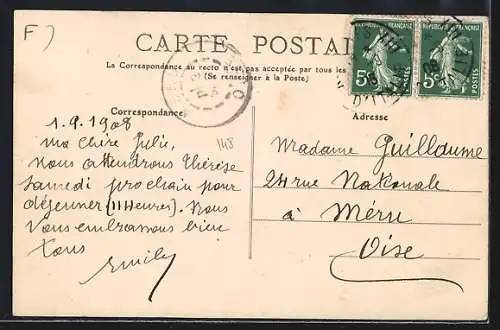 F)
CARTE POSTALE
La Correspondance au recto n'est pas acceptée par tous les
(Se renseigner à la Poste)
Correspondance
Adresse
REPUBLIQUE FRANÇAISE
5c
POSTES
REPUBLIQUE FRANÇAISE
5c
POSTES
148
1.9.1908
Ma chère Julie,
Nous attendrons Thérèse
samedi prochain pour
déjeuner (11 Heures). Nous
Vous embrassons bien
Tous
Emily
Madame Guillaume
24 rue Nationale
à Méru
Oise